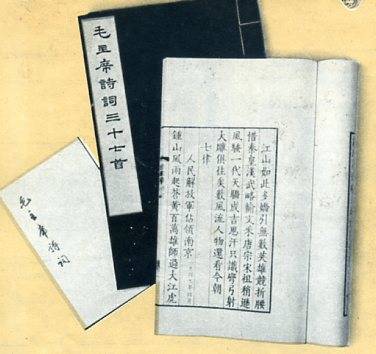 毛主席詩詞三十七首
毛主席詩詞
江山如此多嬌引無數英雄競折腰
惜秦皇漢武略輸文采唐宗宋祖稍遜
風騷一代天驕成吉思汗只識彎弓射
大雕俱往矣數風流人物還看今朝
七律
人民解放軍佔領南京 一九四九年四月
鍾山風雨起蒼黃百萬雄師過大江虎